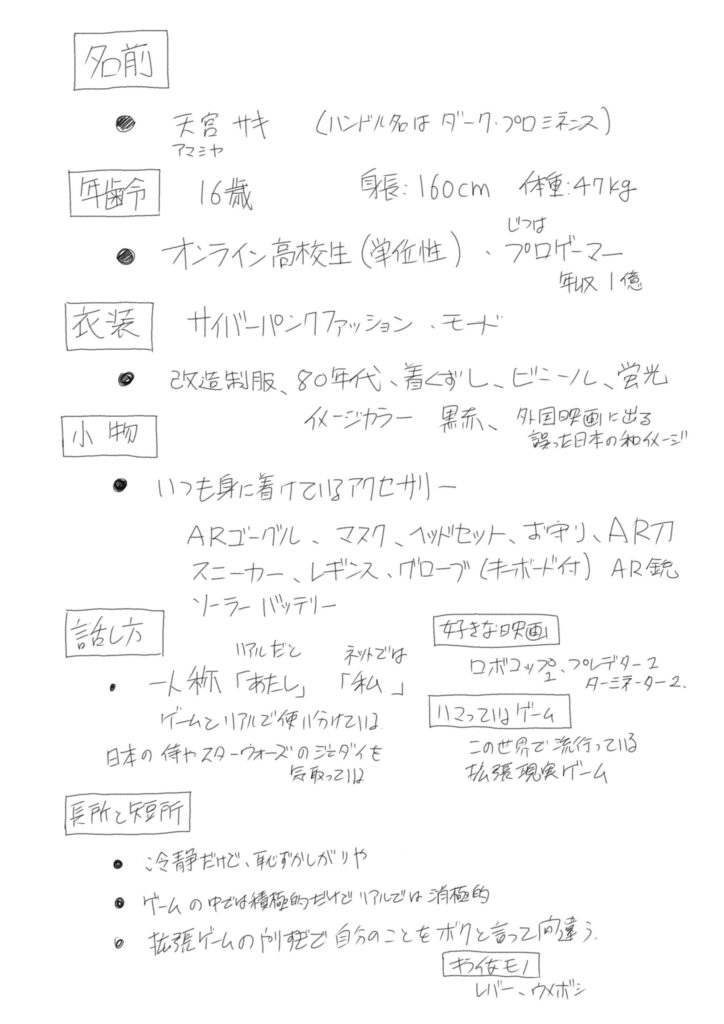 名前
天宮 サキ (ハンドル名は ダーク・プロミネンス)
アマミヤ
年齢 16歳 身長:160cm 体重:47kg
じつは
オンライン高校生(単位性)・プロゲーマー
年収1億
衣装 サイバーパンクファッション・モード
改造制服、80年代、着くずし、ビニール、蛍光
イメージカラー 黒赤、外国映画に出る
誤った日本の和イメージ
小物
いつも身に着けているアクセサリー
ARゴーグル、マスク、ヘッドセット、お守り、AR刀
スニーカー、レギンス、グローブ(キーボード付) AR銃
ソーラーバッテリー
話し方
リアルだと ネットでは
一人称「あたし」「私」
ゲームとリアルで使い分けている
日本の侍やスターウォーズのジェダイを
気取っている
好きな映画
ロボコップ1、2、プレデター2
ターミネーター2.
ハマっているゲーム
この世界で流行っている
拡張現実ゲーム
長所と短所
冷静だけど、恥ずかしがりや
ゲームの中では積極的だけどリアルでは消極的
拡張ゲームのやりすぎで自分のことをボクと言って間違う.
キライなモノ
レバー、ウメボシ